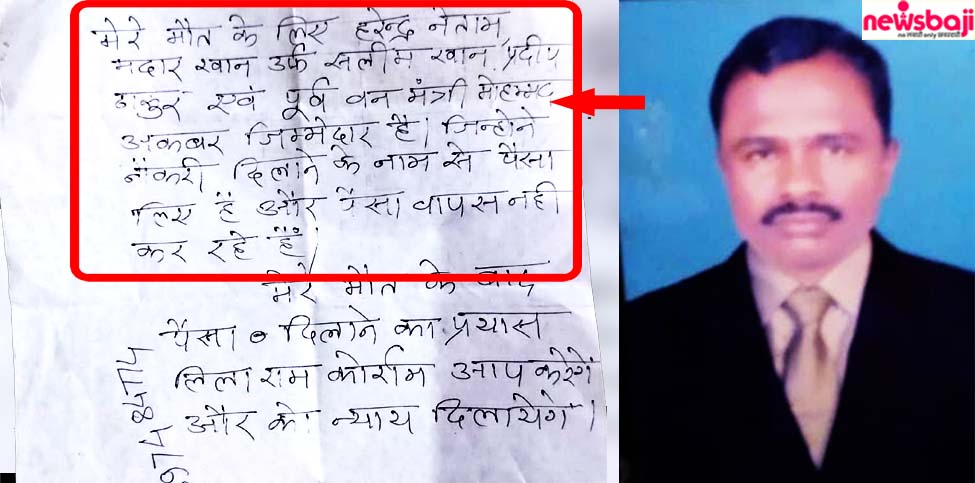 newsbaji
no नकली only असरदारी
मेरे मौत के लिए हरेन्द्र नेताम,
मदार खान उर्फ सलीम खान, प्रदीप
ठाकुर एवं पूर्व वन मंत्री मोहम्मद
अकबर जिम्मेदार है। जिन्होने
नौकरी दिलाने के नाम से पैसा
लिए हैं और पैसा वापस नही
कर रहे हैं।
मेरे मौत के बाद
पैसा दिलाने का प्रयास
लिला राम कोर्राम आप करेगें
और को न्याय दिलायेगे।